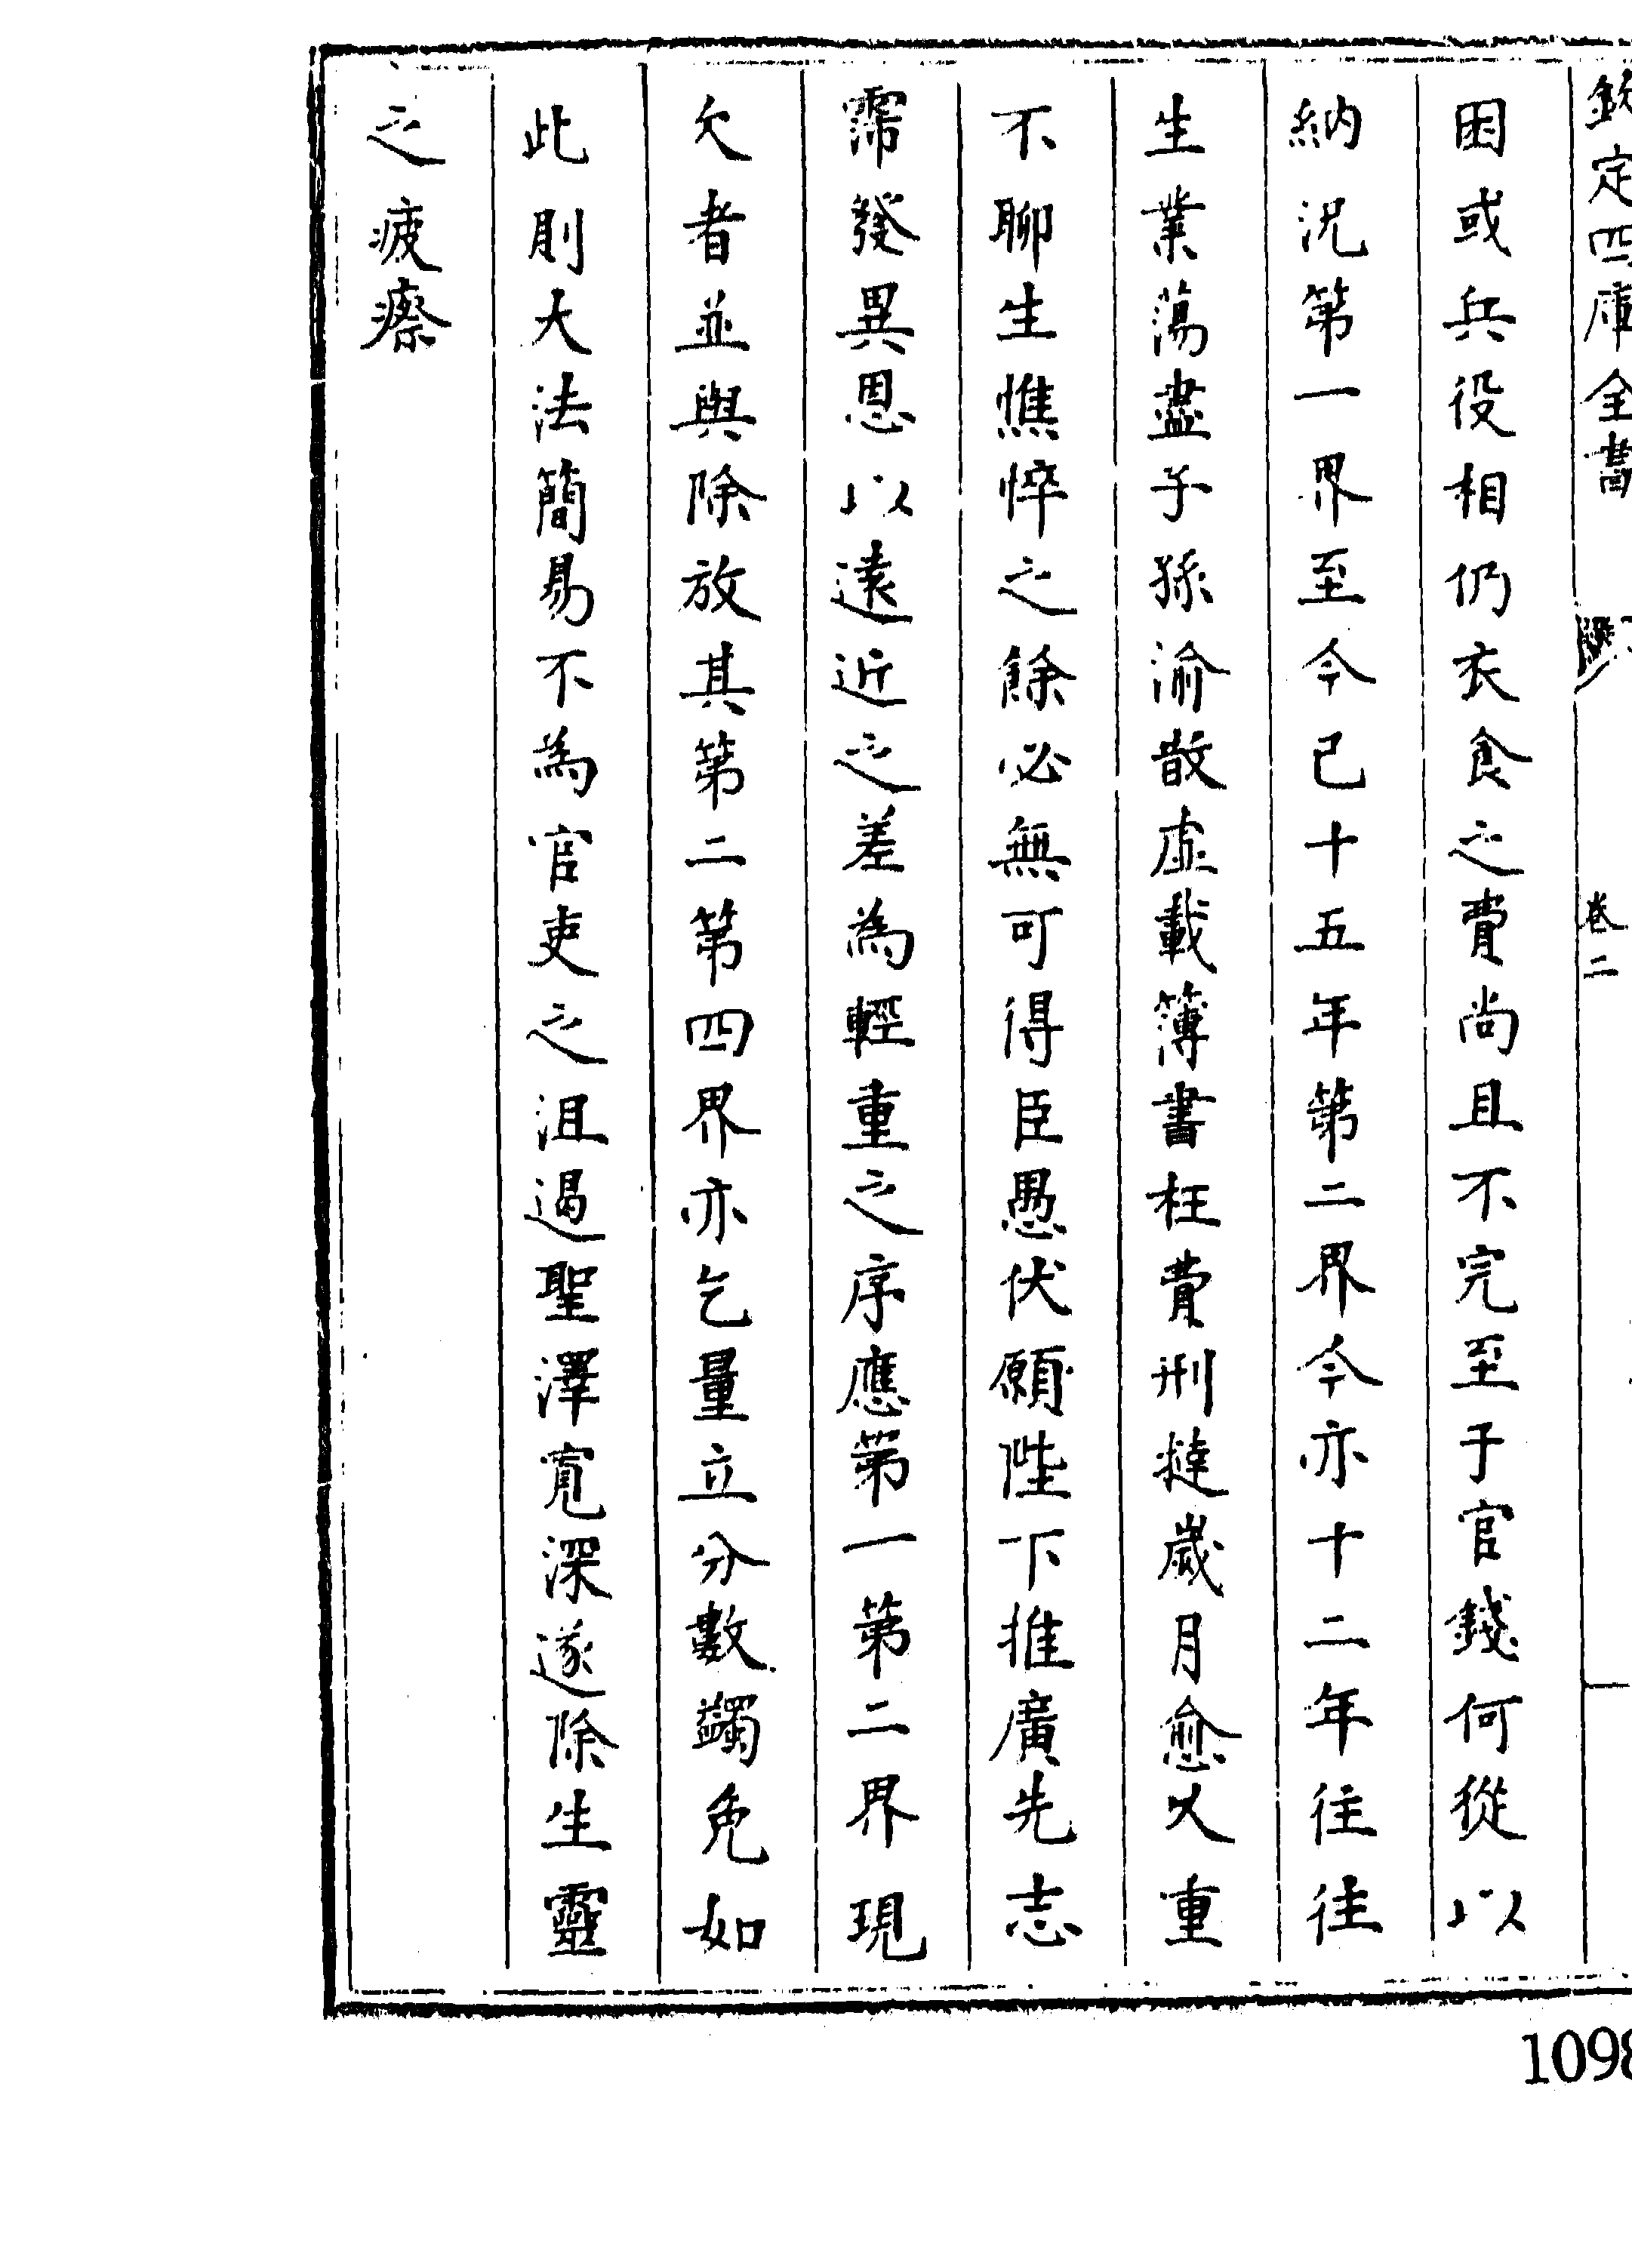 欽定四庫全書
卷二
困或兵役相仍衣食之費尚且不完至于官錢何從以
納況第一界至今已十五年第二界今亦十二年往往
生業蕩盡子孫渝散虛載簿書枉費刑撻歲月愈久重
不聊生憔悴之餘必無可得臣愚伏願陛下推廣先志
霈發異恩以遠近之差為輕重之序應第一第二界現
欠者並與除放其第二第四界亦乞量立分數蠲免如
此則大法簡易不為官吏之沮遏聖澤寛深遂除生靈
之疲瘵
1098